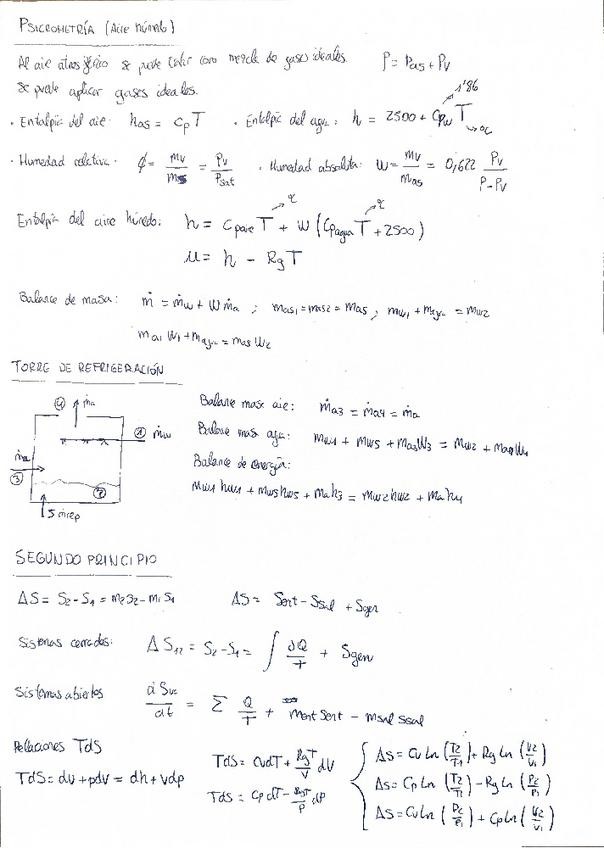 PSICROMETRÍA (Aire húmedo)
Al aire atmosférico se puede tratar como mezcla de gases ideales. P = Pas + Pv
Se puede aplicar gases ideales.
1'86
· Entalpía del aire: has = cp T · Entalpía del agua: h = 2500 + cpw T
→ ºC
· Humedad relativa: ϕ = mv/ms = Pv/Psat · Humedad absoluta: w = mv/mas = 0,622 Pv/(P-Pv)
Entalpía del aire húmedo: h = Cpaire T + w (Cpagua T + 2500)
u = h - RgT
Balance de masa: ṁ = ṁw + wṁa ; mas1 = mas2 = mas ; mw1 + magua = mw2
ma1 w1 + magua = mas w2
TORRE DE REFRIGERACIÓN
④ ṁa
① ṁw
ṁa
③
②
5 ṁrep
Balance masa aire: ṁa3 = ṁa4 = ṁa
Balance masa agua: mw1 + mw5 + ma3W3 = mw2 + ma4W4
Balance de energía:
mw1hw1 + mw5hw5 + mah3 = mw2hw2 + mah4
SEGUNDO PRINCIPIO
ΔS = S2 - S1 = m2s2 - m1s1 ΔS = Sent - Ssal + Sgen
Sistemas cerrados: ΔS12 = S2 - S1 = ∫ ∂Q/T + Sgen
Sistemas abiertos dSvc/dt = Σ Q/T + ment sent - msal ssal
Relaciones TdS
TdS = du + pdv = dh + vdp
TdS = CvdT + RgT/V dV
TdS = Cp dT - RgT/P dP
ΔS = Cv Ln (T2/T1) + Rg Ln (V2/V1)
ΔS = Cp Ln (T2/T1) - Rg Ln (P2/P1)
ΔS = Cv Ln (P2/P1) + Cp Ln (V2/V1)